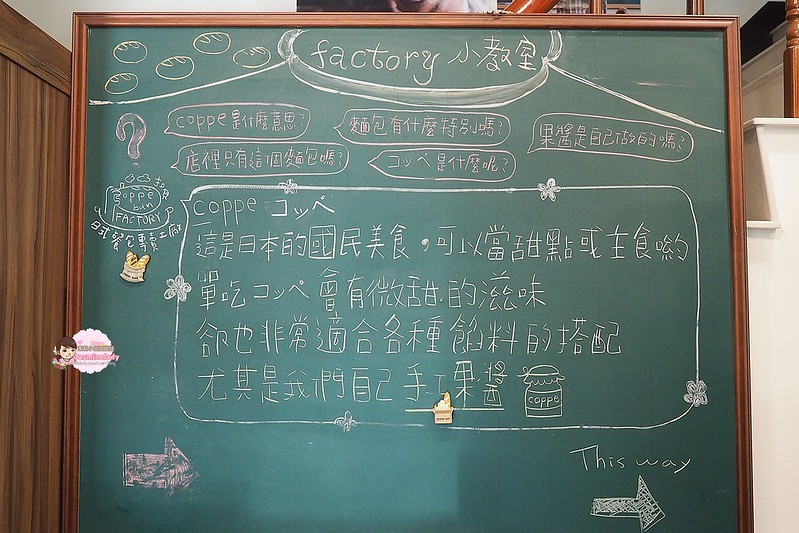 factory 小教室
coppe是什麼意思?
麵包有什麼特別嗎?
果醬是自己做的嗎?
店裡只有這個麵包嗎?
コッペ是什麼呢?
coppe bun
FACTORY
日式餐包專賣工廠
coppe コッペ
這是日本的國民美食,可以當甜點或主食喲
單吃コッペ會有微甜的滋味
卻也非常適合各種餡料的搭配
尤其是我們自己手工果醬
coppe
This way